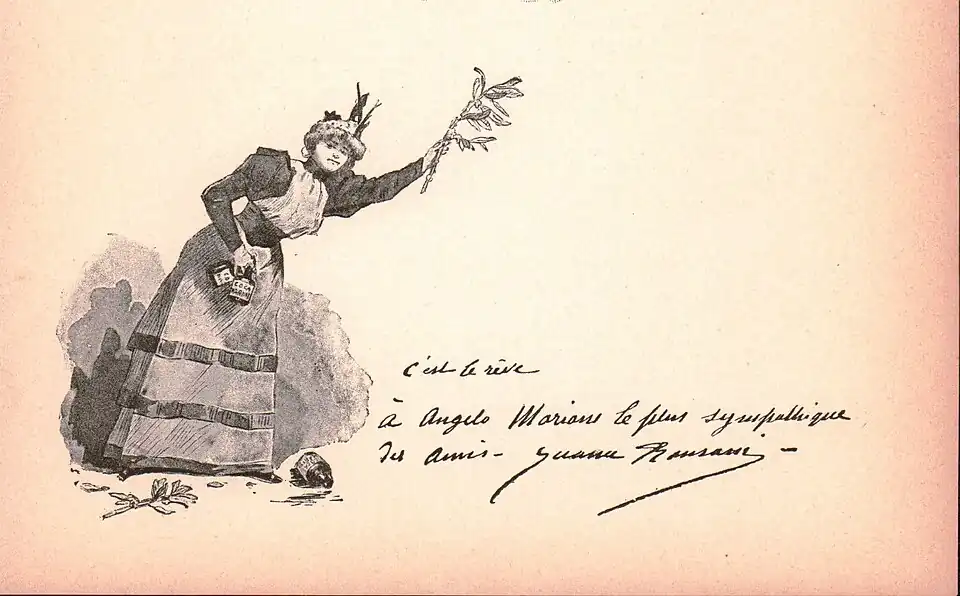 COCA
c'est le rêve
à Angelo Mariani le plus sympathique
des amis -